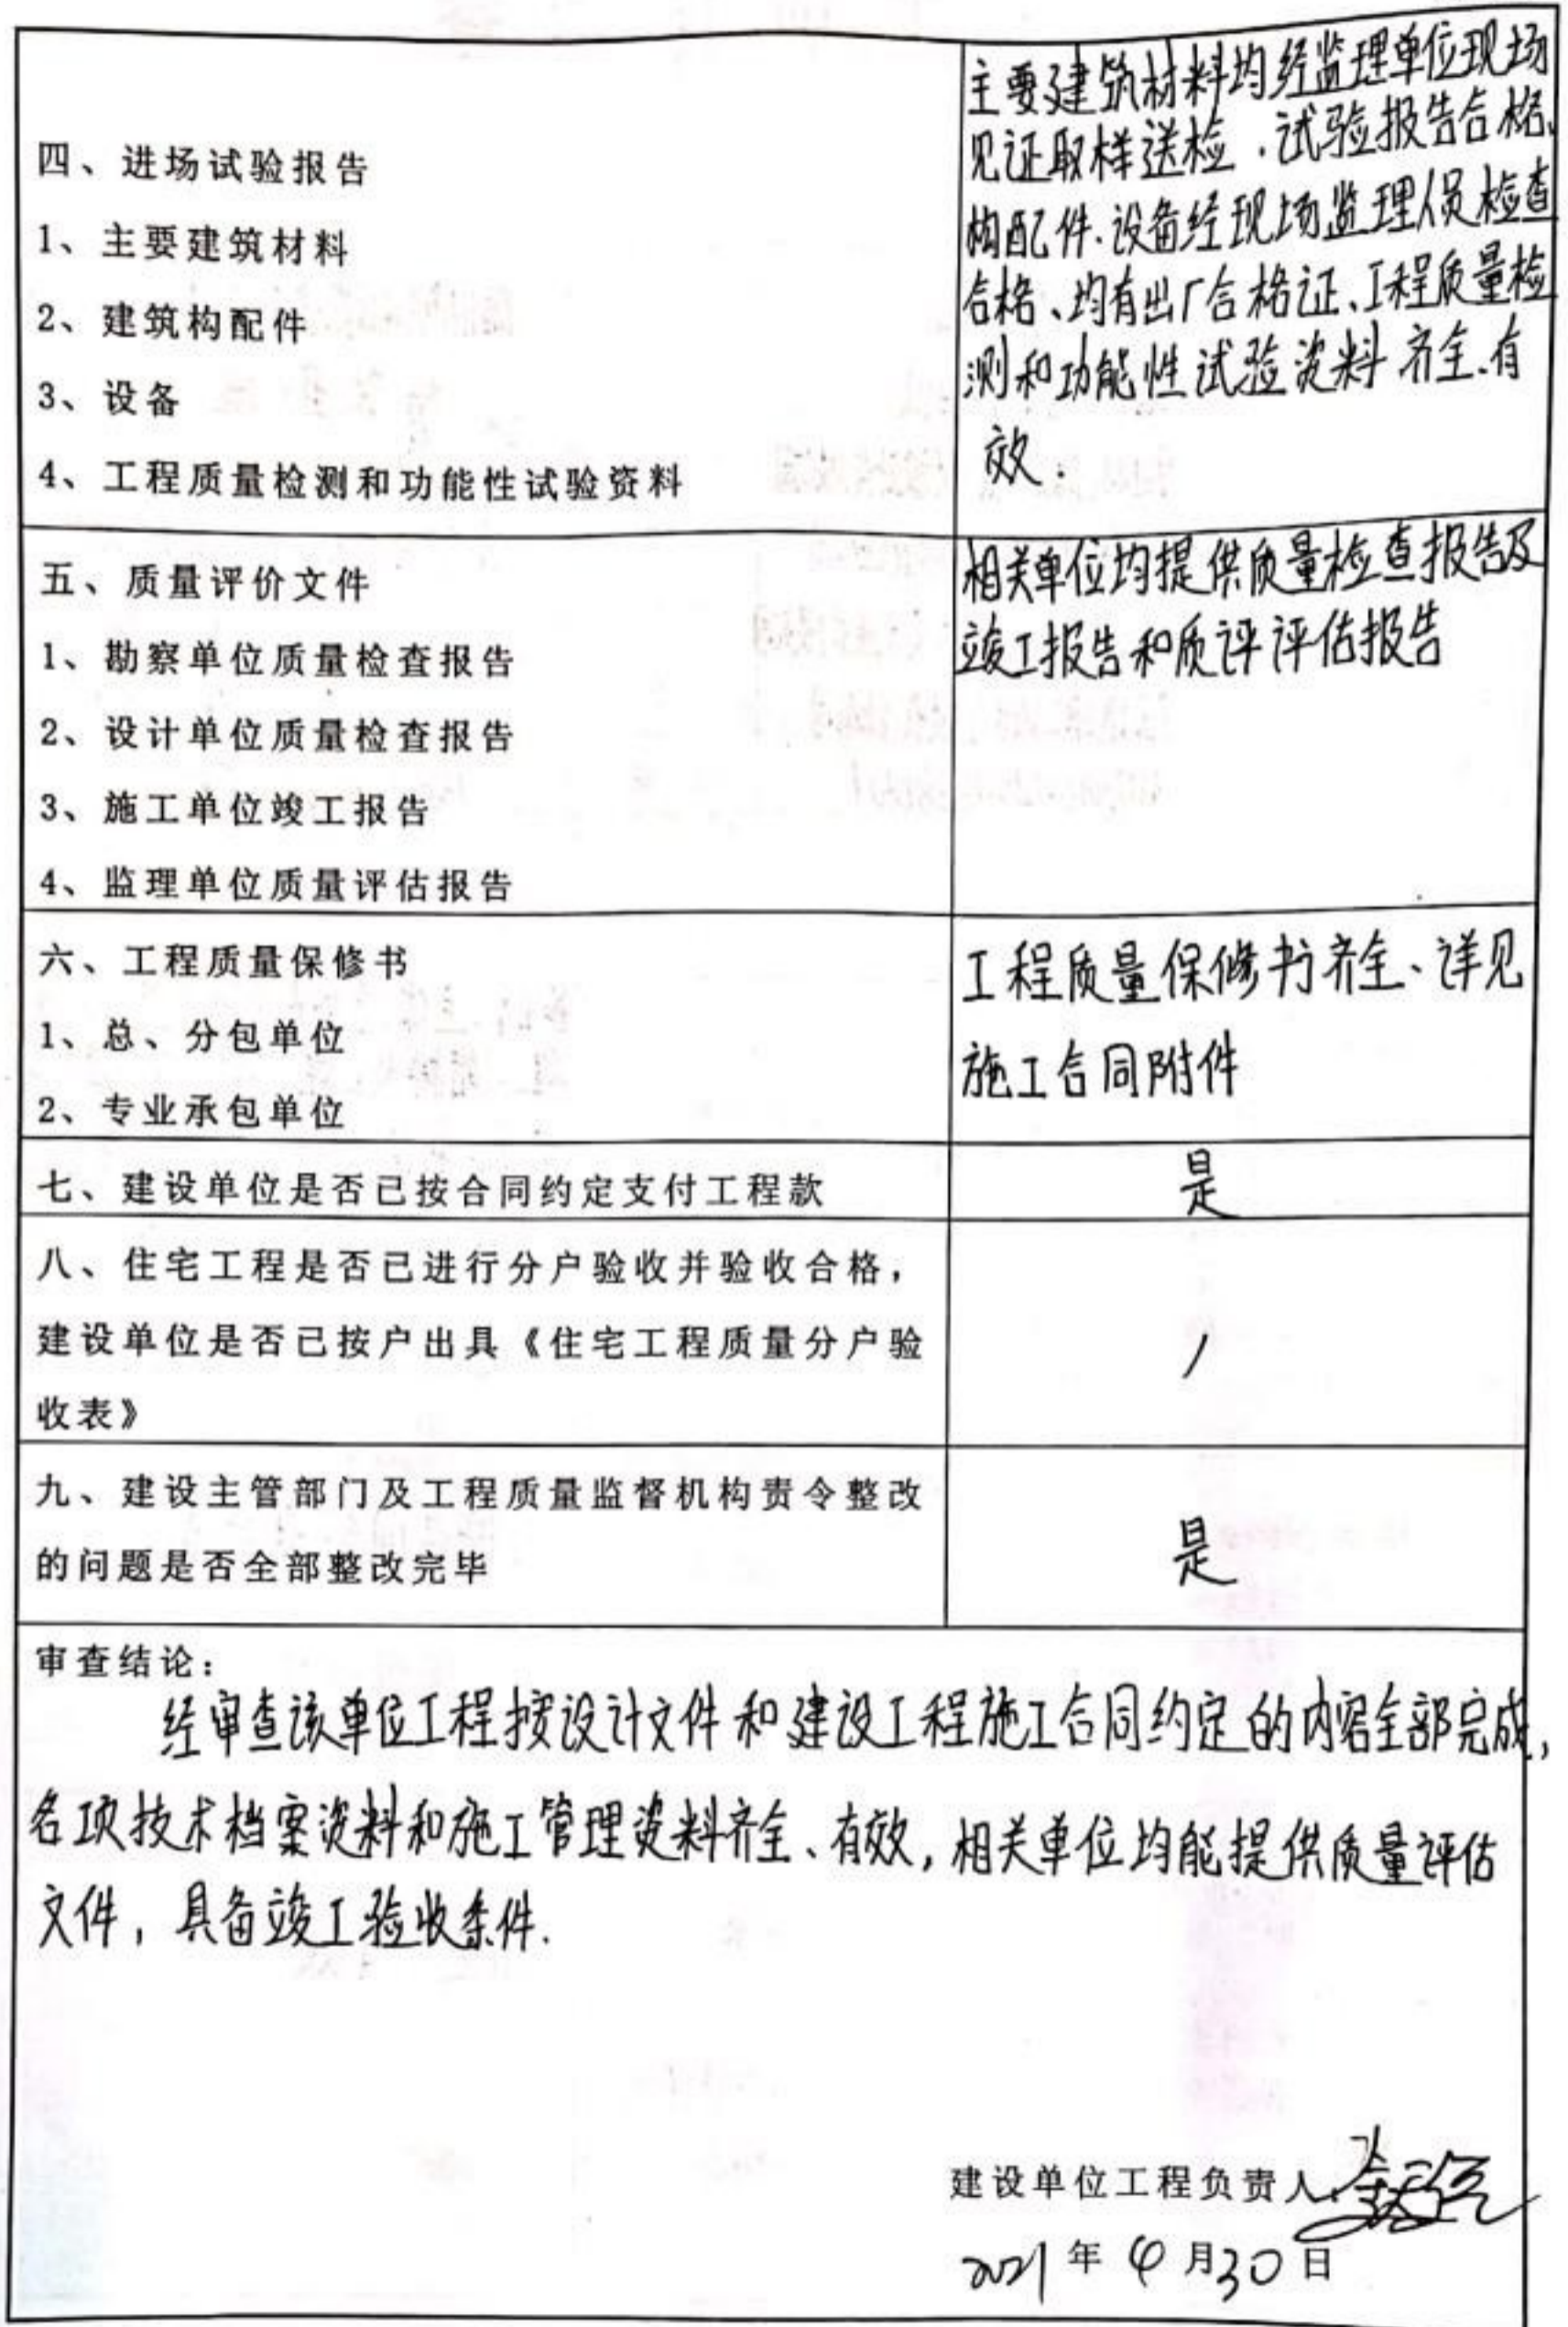 四、进场试验报告
1、主要建筑材料
2、建筑构配件
3、设备
4、工程质量检测和功能性试验资料
主要建筑材料均经监理单位现场
见证取样送检.试验报告合格、
构配件、设备经现场监理人员检查
合格、均有出厂合格证、工程质量检
测和功能性试验资料齐全、有
效.
五、质量评价文件
1、勘察单位质量检查报告
2、设计单位质量检查报告
3、施工单位竣工报告
4、监理单位质量评估报告
相关单位均提供质量检查报告及
竣工报告和质评评估报告
六、工程质量保修书
1、总、分包单位
2、专业承包单位
工程质量保修书齐全、详见
施工合同附件
七、建设单位是否已按合同约定支付工程款
是
八、住宅工程是否已进行分户验收并验收合格，
建设单位是否已按户出具《住宅工程质量分户验
收表》
/
九、建设主管部门及工程质量监督机构责令整改
的问题是否全部整改完毕
是
审查结论：
经审查该单位工程按设计文件和建设工程施工合同约定的内容全部完成，
各项技术档案资料和施工管理资料齐全、有效，相关单位均能提供质量评估
文件，具备竣工验收条件.
建设单位工程负责人：
2021年4月30日